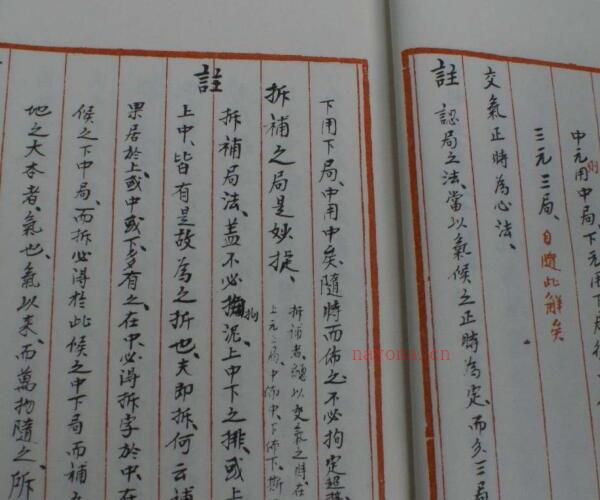 中元用中局下元用下局
則
三元三局、自隨此解矣
交氣正時為心法、
註 認局之法、當以氣候之正時為定、而分三局
下用下局、中用中矣、隨時而佈之、不必拘定超接
拆補之局是妙捉、
拆補者、總以交氣之時、在
上元之局中佈中、下佈下、斯
註 拆補局法、蓋不必拘泥上中下之排、或上
上中、皆有是故為之折也、夫即拆、何云補
果居於上或中或下多有之、在中、必得拆字於中、在
候之下中局、而拆必得於此候之中下局而補之
地之大本者、氣也、氣以表、而萬物隨之、所